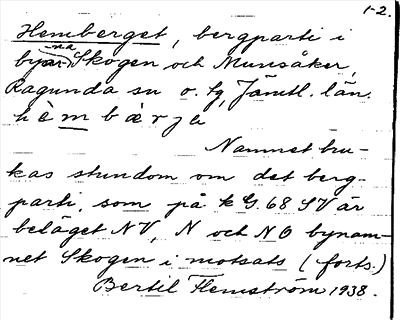 1-2.
Hemberget, bergparti i
byarna Skogen och Munsåker,
Ragunda sn o. tg, Jämtl. län.
hèmbærje
Namnet bru-
kas stundom om det berg-
parti, som på k G. 68 SV är
beläget NV, N och NO bynam-
net Skogen i motsats (forts.)
Bertil Flemström 1938.